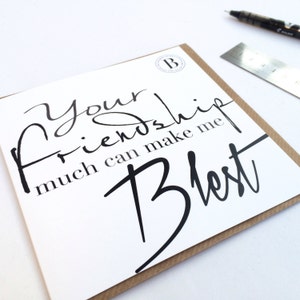 B
Your
Friendship
much can make me
Blest